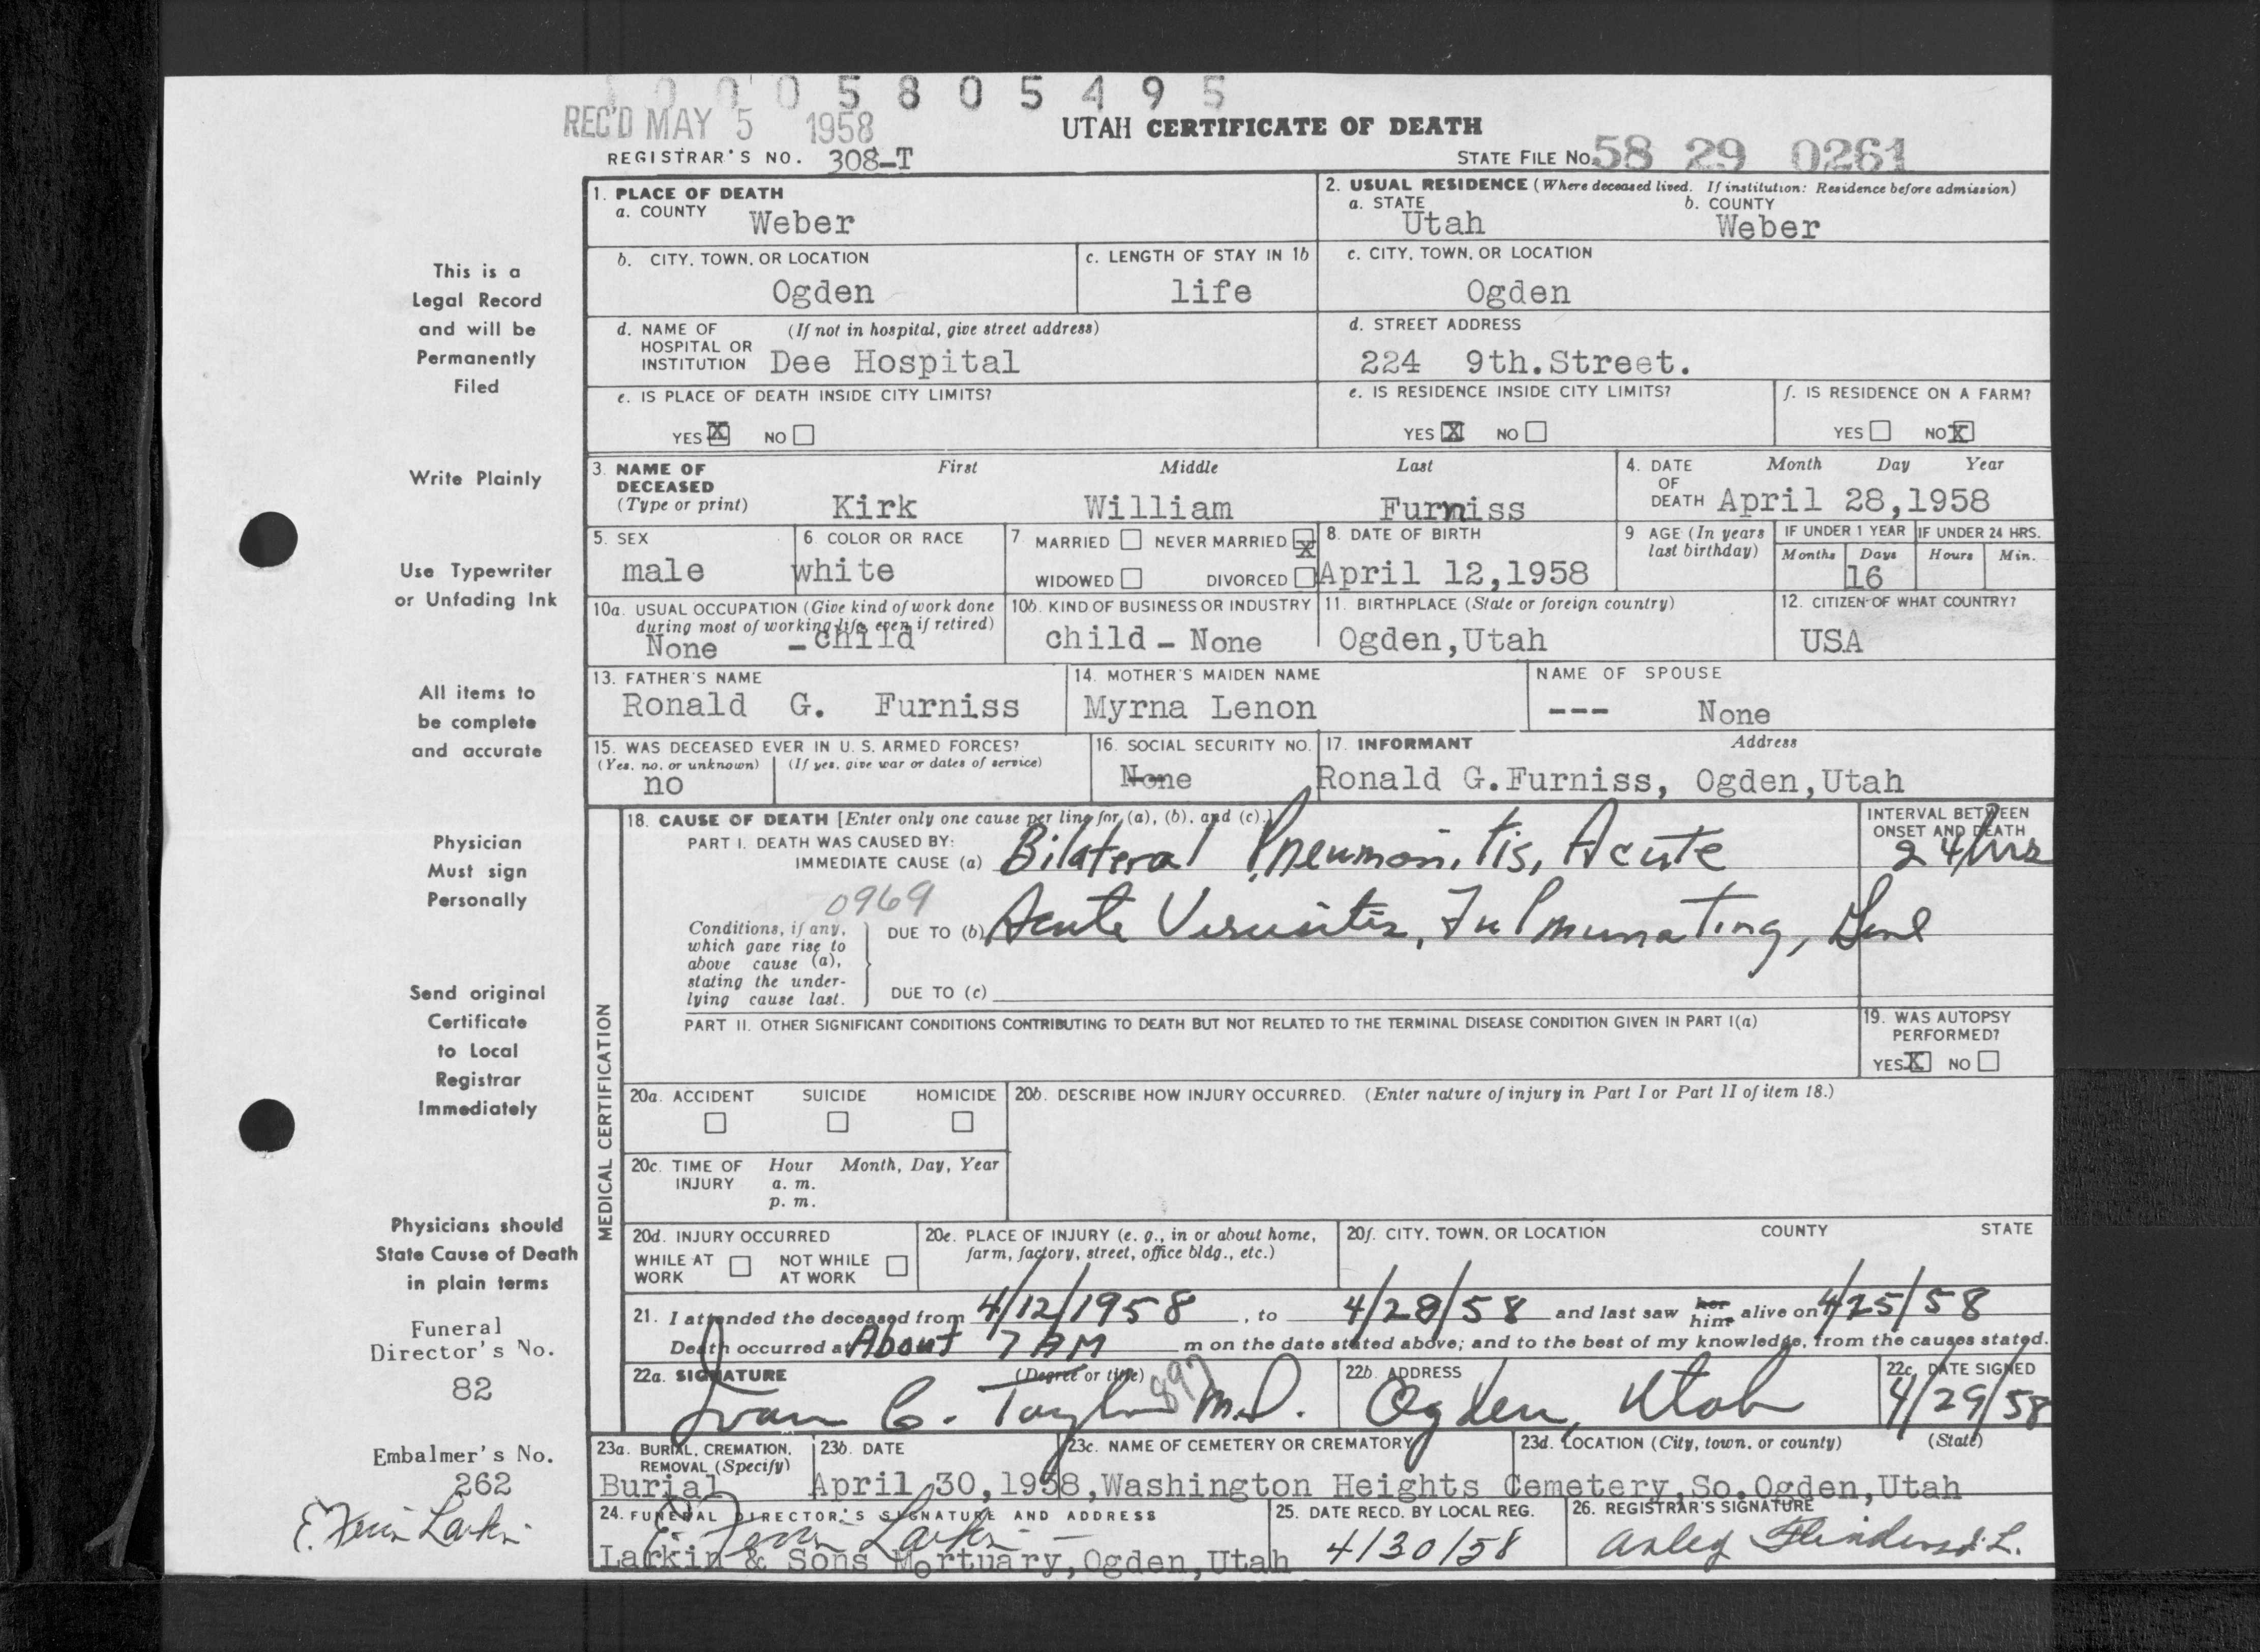 10005805495
REC'D MAY 5 1958
UTAH CERTIFICATE OF DEATH
REGISTRAR'S NO. 308-T
STATE FILE NO. 58 29 0261
1. PLACE OF DEATH
a. COUNTY Weber
2. USUAL RESIDENCE (Where deceased lived. If institution: Residence before admission)
a. STATE Utah b. COUNTY Weber
b. CITY, TOWN, OR LOCATION Ogden
c. LENGTH OF STAY IN 1b life
c. CITY, TOWN, OR LOCATION Ogden
d. NAME OF HOSPITAL OR INSTITUTION (If not in hospital, give street address) Dee Hospital
d. STREET ADDRESS 224 9th.Street.
e. IS PLACE OF DEATH INSIDE CITY LIMITS?
YES X NO
e. IS RESIDENCE INSIDE CITY LIMITS?
YES X NO
f. IS RESIDENCE ON A FARM?
YES NO X
3. NAME OF DECEASED (Type or print)
First Middle Last
Kirk William Furniss
4. DATE OF DEATH Month Day Year
April 28,1958
5. SEX male
6. COLOR OR RACE white
7. MARRIED NEVER MARRIED X
WIDOWED DIVORCED
8. DATE OF BIRTH April 12,1958
9 AGE (In years last birthday)
IF UNDER 1 YEAR Months Days 16
IF UNDER 24 HRS. Hours Min.
10a. USUAL OCCUPATION (Give kind of work done during most of working life, even if retired)
None - child
10b. KIND OF BUSINESS OR INDUSTRY child - None
11. BIRTHPLACE (State or foreign country) Ogden,Utah
12. CITIZEN OF WHAT COUNTRY? USA
13. FATHER'S NAME Ronald G. Furniss
14. MOTHER'S MAIDEN NAME Myrna Lenon
NAME OF SPOUSE --- None
15. WAS DECEASED EVER IN U. S. ARMED FORCES?
(Yes, no, or unknown) (If yes, give war or dates of service)
no
16. SOCIAL SECURITY NO. None
17. INFORMANT Address
Ronald G.Furniss, Ogden,Utah
MEDICAL CERTIFICATION
18. CAUSE OF DEATH [Enter only one cause per line for (a), (b), and (c).]
PART I. DEATH WAS CAUSED BY:
IMMEDIATE CAUSE (a) Bilateral Pneumonitis, Acute
INTERVAL BETWEEN ONSET AND DEATH 24 hrs
0969
Conditions, if any, which gave rise to above cause (a), stating the underlying cause last.
DUE TO (b) Acute Virusitis, Fulmunating,
DUE TO (c)
PART II. OTHER SIGNIFICANT CONDITIONS CONTRIBUTING TO DEATH BUT NOT RELATED TO THE TERMINAL DISEASE CONDITION GIVEN IN PART I(a)
19. WAS AUTOPSY PERFORMED?
YES X NO
20a. ACCIDENT SUICIDE HOMICIDE
20b. DESCRIBE HOW INJURY OCCURRED. (Enter nature of injury in Part I or Part II of item 18.)
20c. TIME OF INJURY Hour Month, Day, Year
a. m.
p. m.
20d. INJURY OCCURRED
WHILE AT WORK NOT WHILE AT WORK
20e. PLACE OF INJURY (e. g., in or about home, farm, factory, street, office bldg., etc.)
20f. CITY, TOWN, OR LOCATION COUNTY STATE
21. I attended the deceased from 4/12/1958, to 4/28/58 and last saw her him alive on 4/25/58
Death occurred at About 7 AM m on the date stated above; and to the best of my knowledge, from the causes stated.
22a. SIGNATURE (Degree or title)
Ivan C. Taylor M.D. 897
22b. ADDRESS Ogden, Utah
22c. DATE SIGNED 4/29/58
23a. BURIAL, CREMATION, REMOVAL (Specify) Burial
23b. DATE April 30,1958,
23c. NAME OF CEMETERY OR CREMATORY Washington Heights Cemetery,
23d. LOCATION (City, town, or county) (State) So.Ogden,Utah
24. FUNERAL DIRECTOR'S SIGNATURE AND ADDRESS
Larkin & Sons Mortuary,Ogden,Utah
25. DATE RECD. BY LOCAL REG. 4/30/58
26. REGISTRAR'S SIGNATURE
This is a
Legal Record
and will be
Permanently
Filed
Write Plainly
Use Typewriter
or Unfading Ink
All items to
be complete
and accurate
Physician
Must sign
Personally
Send original
Certificate
to Local
Registrar
Immediately
Physicians should
State Cause of Death
in plain terms
Funeral
Director's No.
82
Embalmer's No.
262